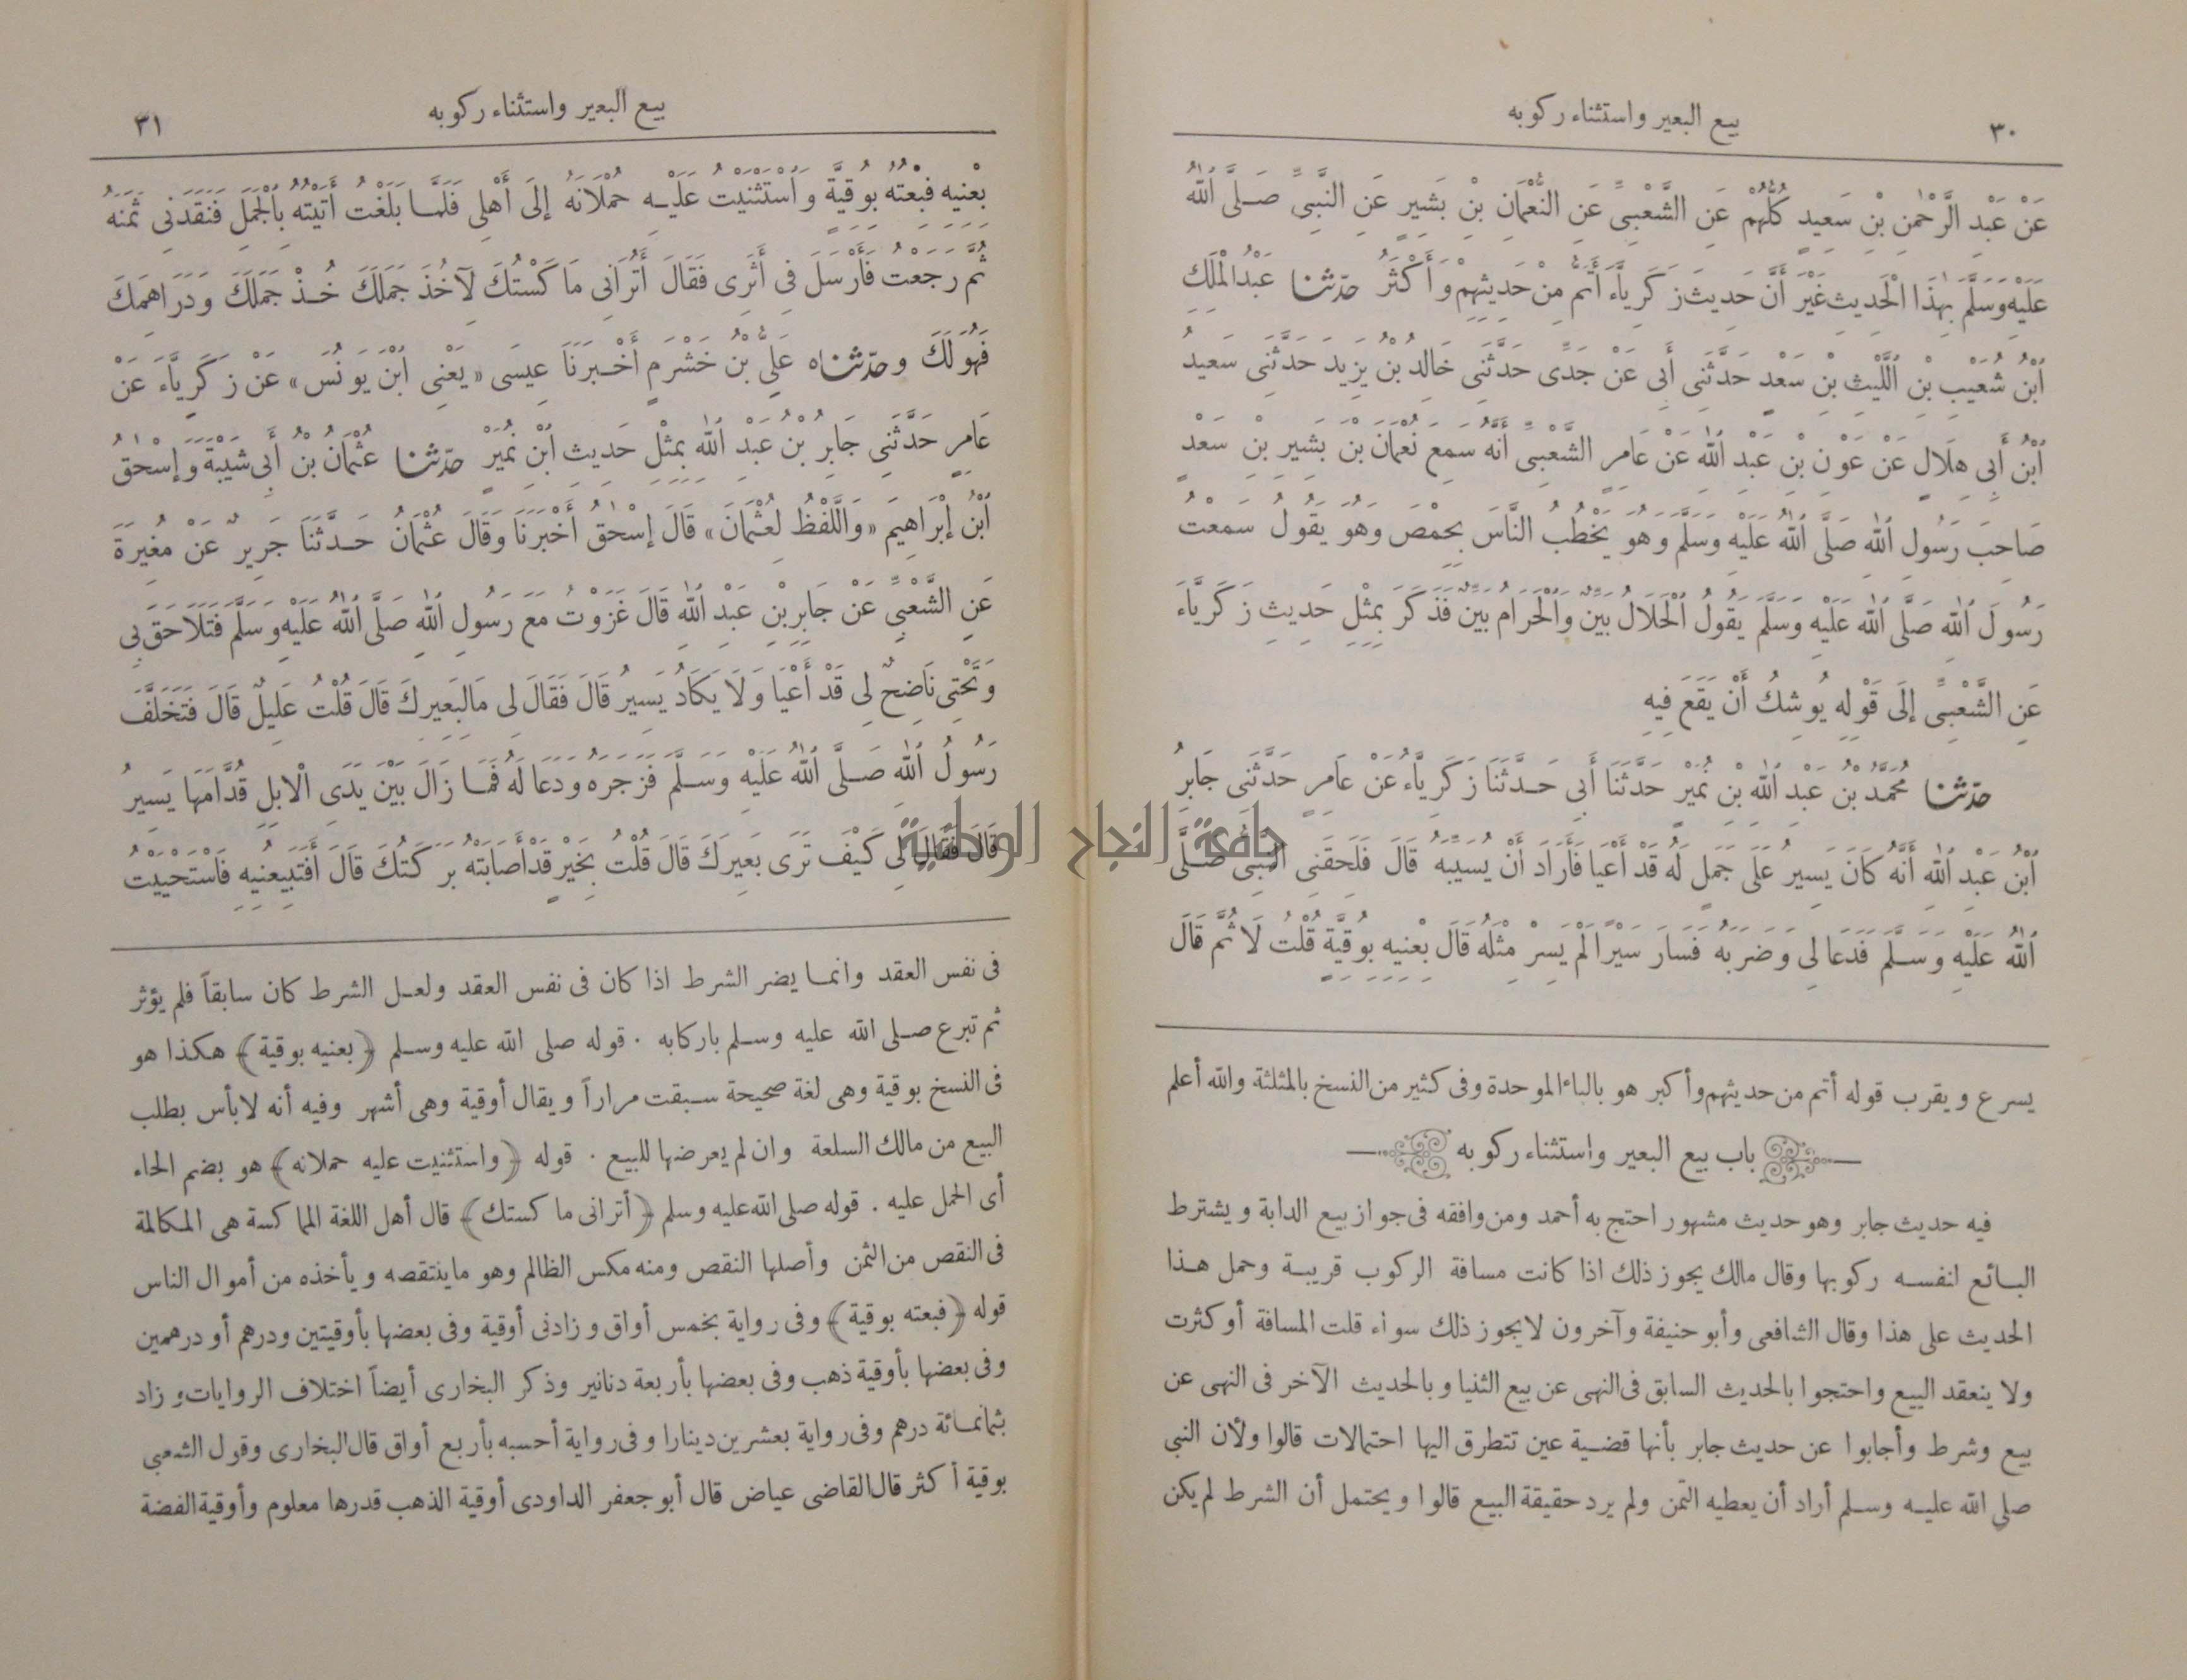 بيع البعير واستثناء ركوبه
٣٠
عَنْ عَبْدِ الرَّحْمٰنِ بْنِ سَعِيدٍ كُلُّهُمْ عَنِ الشَّعْبِيِّ عَنِ النُّعْمَانِ بْنِ بَشِيرٍ عَنِ النَّبِيِّ صَلَّى اللهُ
عَلَيْهِ وَسَلَّمَ بِهٰذَا الْحَدِيثِ غَيْرَ أَنَّ حَدِيثَ زَكَرِيَّاءَ أَتَمُّ مِنْ حَدِيثِهِمْ وَأَكْثَرُ حدّثنا عَبْدُ الْمَلِكِ
ابْنُ شُعَيْبِ بْنِ اللَّيْثِ بْنِ سَعْدٍ حَدَّثَنِى أَبِى عَنْ جَدِّى حَدَّثَنِى خَالِدُ بْنُ يَزِيدَ حَدَّثَنِى سَعِيدُ
ابْنُ أَبِى هِلَالٍ عَنْ عَوْنِ بْنِ عَبْدِ اللهِ عَنْ عَامِرٍ الشَّعْبِىِّ أَنَّهُ سَمِعَ نُعْمَانَ بْنَ بَشِيرِ بْنِ سَعْدٍ
صَاحِبَ رَسُولِ اللهِ صَلَّى اللهُ عَلَيْهِ وَسَلَّمَ وَهُوَ يَخْطُبُ النَّاسَ بِحِمْصَ وَهُوَ يَقُولُ سَمِعْتُ
رَسُولَ اللهِ صَلَّى اللهُ عَلَيْهِ وَسَلَّمَ يَقُولُ الْحَلَالُ بَيِّنٌ وَالْحَرَامُ بَيِّنٌ فَذَكَرَ بِمِثْلِ حَدِيثِ زَكَرِيَّاءَ
عَنِ الشَّعْبِىِّ إِلَى قَوْلِهِ يُوشِكُ أَنْ يَقَعَ فِيهِ
حدّثنا مُحَمَّدُ بْنُ عَبْدِ اللهِ بْنِ نُمَيْرٍ حَدَّثَنَا أَبِى حَدَّثَنَا زَكَرِيَّاءُ عَنْ عَامِرٍ حَدَّثَنِى جَابِرُ
ابْنُ عَبْدِ اللهِ أَنَّهُ كَانَ يَسِيرُ عَلَى جَمَلٍ لَهُ قَدْ أَعْيَا فَأَرَادَ أَنْ يُسَيِّبَهُ قَالَ فَلَحِقَنِى النَّبِىُّ صَلَّى
اللهُ عَلَيْهِ وَسَلَّمَ فَدَعَا لِى وَضَرَبَهُ فَسَارَ سَيْرًا لَمْ يَسِرْ مِثْلَهُ قَالَ بِعْنِيهِ بِوُقِيَّةٍ قُلْتُ لَا ثُمَّ قَالَ
يسرع ويقرب قوله أتم من حديثهم وأكبر هو بالباء الموحدة وفى كثير من النسخ بالمثلثة والله أعلم
باب بيع البعير واستثناء ركوبه
فيه حديث جابر وهو حديث مشهور احتج به أحمد ومن وافقه فى جواز بيع الدابة ويشترط
البائع لنفسه ركوبها وقال مالك يجوز ذلك اذا كانت مسافة الركوب قريبة وحمل هذا
الحديث على هذا وقال الشافعى وأبو حنيفة وآخرون لا يجوز ذلك سواء قلت المسافة أو كثرت
ولا ينعقد البيع واحتجوا بالحديث السابق فى النهى عن بيع الثنيا وبالحديث الآخر فى النهى عن
بيع وشرط وأجابوا عن حديث جابر بأنها قضية عين تتطرق اليها احتمالات قالوا ولأن النبى
صلى الله عليه وسلم أراد أن يعطيه الثمن ولم يرد حقيقة البيع قالوا ويحتمل أن الشرط لم يكن
بيع البعير واستثناء ركوبه
٣١
بِعْنِيهِ فَبِعْتُهُ بِوُقِيَّةٍ وَاسْتَثْنَيْتُ عَلَيْهِ حُمْلَانَهُ إِلَى أَهْلِى فَلَمَّا بَلَغْتُ أَتَيْتُهُ بِالْجَمَلِ فَنَقَدَنِى ثَمَنَهُ
ثُمَّ رَجَعْتُ فَأَرْسَلَ فِى أَثَرِى فَقَالَ أَتُرَانِى مَاكَسْتُكَ لِآخُذَ جَمَلَكَ خُذْ جَمَلَكَ وَدَرَاهِمَكَ
فَهُوَ لَكَ وحدّثناه عَلِىُّ بْنُ خَشْرَمٍ أَخْبَرَنَا عِيسَى «يَعْنِى ابْنَ يُونُسَ» عَنْ زَكَرِيَّاءَ عَنْ
عَامِرٍ حَدَّثَنِى جَابِرُ بْنُ عَبْدِ اللهِ بِمِثْلِ حَدِيثِ ابْنِ نُمَيْرٍ حدّثنا عُثْمَانُ بْنُ أَبِى شَيْبَةَ وَإِسْحٰقُ
ابْنُ إِبْرَاهِيمَ «وَاللَّفْظُ لِعُثْمَانَ» قَالَ إِسْحٰقُ أَخْبَرَنَا وَقَالَ عُثْمَانُ حَدَّثَنَا جَرِيرٌ عَنْ مُغِيرَةَ
عَنِ الشَّعْبِىِّ عَنْ جَابِرِ بْنِ عَبْدِ اللهِ قَالَ غَزَوْتُ مَعَ رَسُولِ اللهِ صَلَّى اللهُ عَلَيْهِ وَسَلَّمَ فَتَلَاحَقَ بِى
وَتَحْتِى نَاضِحٌ لِى قَدْ أَعْيَا وَلَا يَكَادُ يَسِيرُ قَالَ فَقَالَ لِى مَا لِبَعِيرِكَ قَالَ قُلْتُ عَلِيلٌ قَالَ فَتَخَلَّفَ
رَسُولُ اللهِ صَلَّى اللهُ عَلَيْهِ وَسَلَّمَ فَزَجَرَهُ وَدَعَا لَهُ فَمَا زَالَ بَيْنَ يَدَىِ الْابِلِ قُدَّامَهَا يَسِيرُ
قَالَ فَقَالَ لِى كَيْفَ تَرَى بَعِيرَكَ قَالَ قُلْتُ بِخَيْرٍ قَدْ أَصَابَتْهُ بَرَكَتُكَ قَالَ أَفَتَبِيعُنِيهِ فَاسْتَحْيَيْتُ
فى نفس العقد وانما يضر الشرط اذا كان فى نفس العقد ولعل الشرط كان سابقاً فلم يؤثر
ثم تبرع صلى الله عليه وسلم باركابه . قوله صلى الله عليه وسلم ﴿بعنيه بوقية﴾ هكذا هو
فى النسخ بوقية وهى لغة صحيحة سبقت مراراً ويقال أوقية وهى أشهر وفيه أنه لا بأس بطلب
البيع من مالك السلعة وان لم يعرضها للبيع . قوله ﴿واستثنيت عليه حملانه﴾ هو بضم الحاء
أى الحمل عليه . قوله صلى الله عليه وسلم ﴿أترانى ماكستك﴾ قال أهل اللغة المماكسة هى المكالمة
فى النقص من الثمن وأصلها النقص ومنه مكس الظالم وهو ما ينتقصه ويأخذه من أموال الناس
قوله ﴿فبعته بوقية﴾ وفى رواية بخمس أواق وزادنى أوقية وفى بعضها بأوقيتين ودرهم أو درهمين
وفى بعضها بأوقية ذهب وفى بعضها بأربعة دنانير وذكر البخارى أيضاً اختلاف الروايات وزاد
بثمانمائة درهم وفى رواية بعشرين دينارا وفى رواية أحسبه بأربع أواق قال البخارى وقول الشعبى
بوقية أكثر قال القاضى عياض قال أبو جعفر الداودى أوقية الذهب قدرها معلوم وأوقية الفضة
جامعة النجاح الوطنية